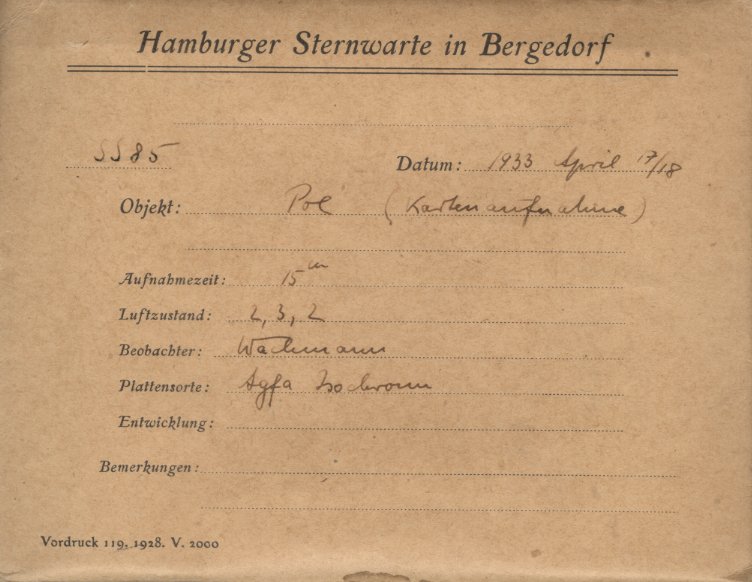 Hamburger Sternwarte in Bergedorf
SS85
Datum: 1933 April 17/18
Objekt: Pol (Kartenaufnahme)
Aufnahmezeit: 15m
Luftzustand: 2, 3, 2
Beobachter: Wachmann
Plattensorte: Agfa Isochrom
Entwicklung:
Bemerkungen:
Vordruck 119. 1928. V. 2000